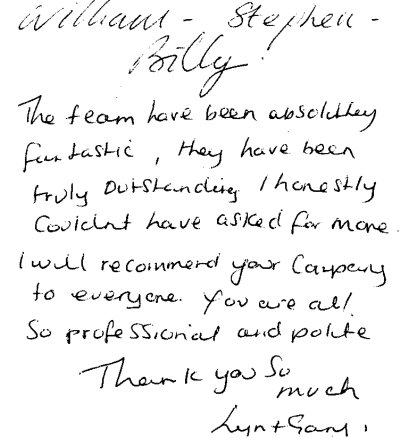 William - Stephen -
Billy.
The team have been absolutley
fantastic, they have been
truly outstanding I honestly
Couldnt have asked for more.
I will recommend your Company
to everyone. You are all
So professional and polite
Thank you So
much
Lyn + Gary.